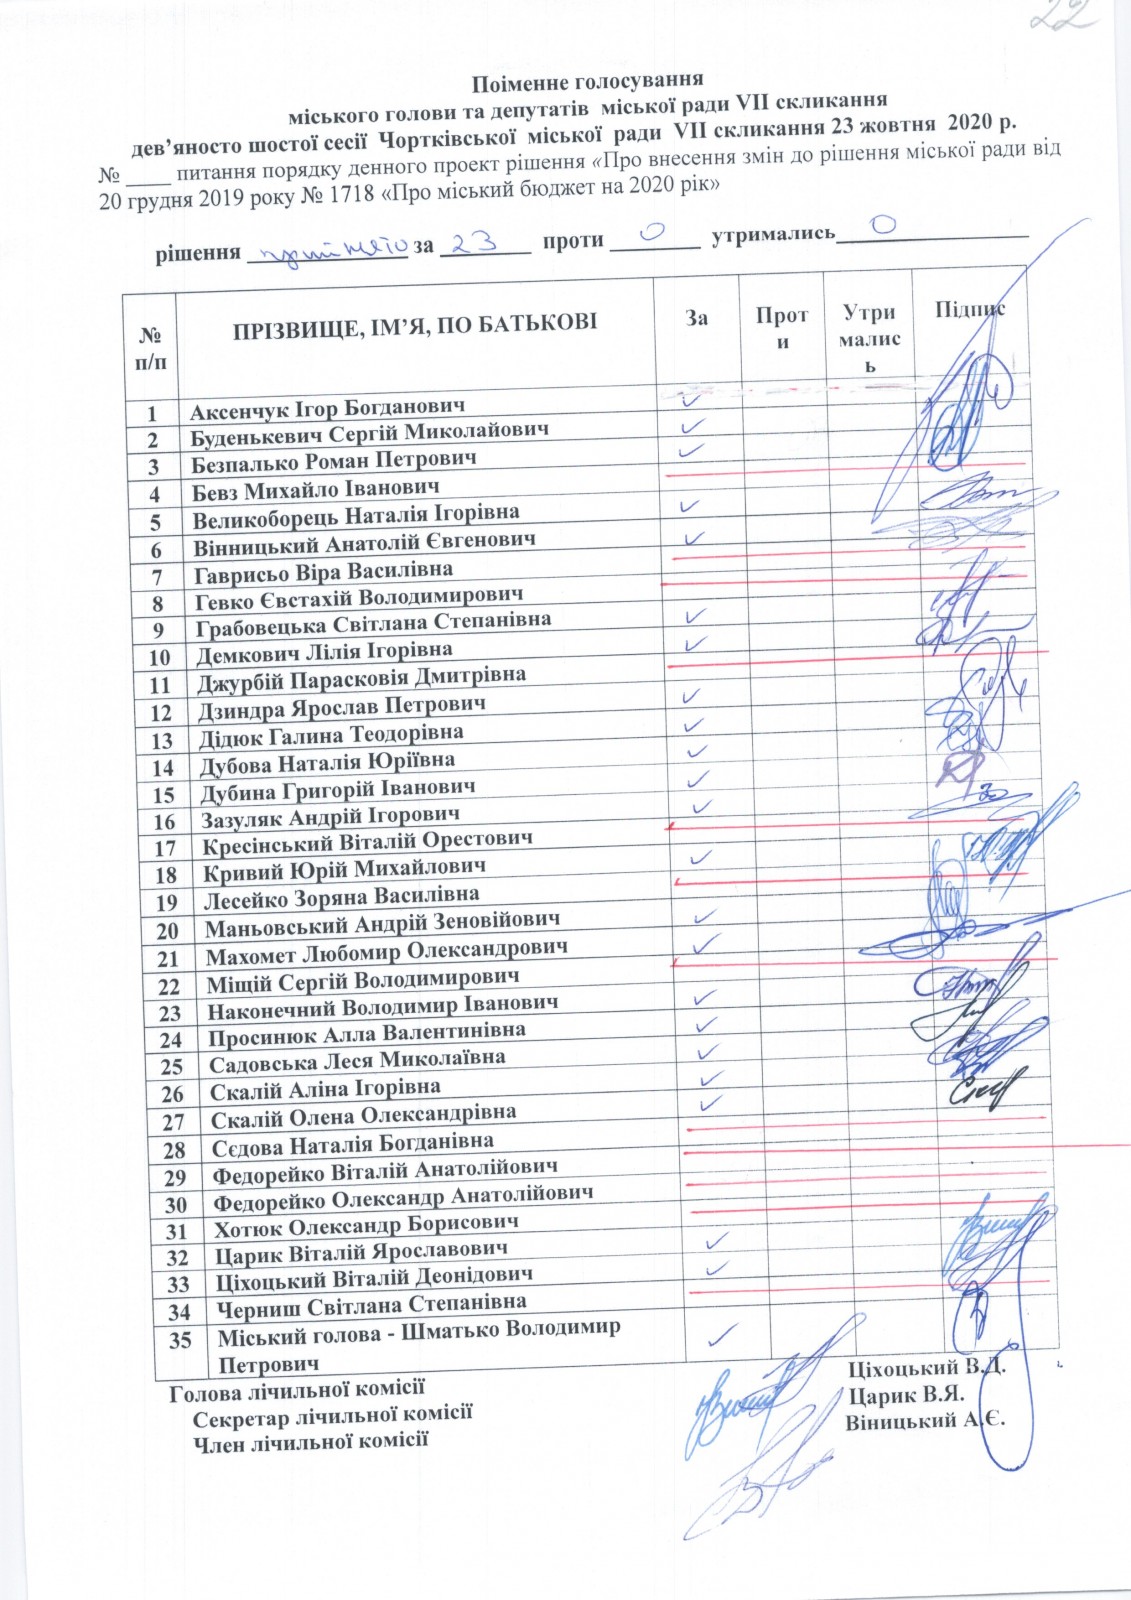 22
Поіменне голосування
міського голови та депутатів міської ради VII скликання
дев’яносто шостої сесії Чортківської міської ради VII скликання 23 жовтня 2020 р.
№ ____ питання порядку денного проект рішення «Про внесення змін до рішення міської ради від
20 грудня 2019 року № 1718 «Про міський бюджет на 2020 рік»
рішення прийнято за 23 проти 0 утримались 0
№ п/п ПРІЗВИЩЕ, ІМ’Я, ПО БАТЬКОВІ За Прот и Утри малис ь Підпис
1 Аксенчук Ігор Богданович ✓
2 Буденькевич Сергій Миколайович ✓
3 Безпалько Роман Петрович ✓
4 Бевз Михайло Іванович
5 Великоборець Наталія Ігорівна ✓
6 Вінницький Анатолій Євгенович ✓
7 Гаврисьо Віра Василівна
8 Гевко Євстахій Володимирович
9 Грабовецька Світлана Степанівна ✓
10 Демкович Лілія Ігорівна ✓
11 Джурбій Парасковія Дмитрівна
12 Дзиндра Ярослав Петрович ✓
13 Дідюк Галина Теодорівна ✓
14 Дубова Наталія Юріївна ✓
15 Дубина Григорій Іванович ✓
16 Зазуляк Андрій Ігорович ✓
17 Кресінський Віталій Орестович
18 Кривий Юрій Михайлович ✓
19 Лесейко Зоряна Василівна
20 Маньовський Андрій Зеновійович ✓
21 Махомет Любомир Олександрович ✓
22 Міщій Сергій Володимирович
23 Наконечний Володимир Іванович ✓
24 Просинюк Алла Валентинівна ✓
25 Садовська Леся Миколаївна ✓
26 Скалій Аліна Ігорівна ✓
27 Скалій Олена Олександрівна ✓
28 Сєдова Наталія Богданівна
29 Федорейко Віталій Анатолійович
30 Федорейко Олександр Анатолійович
31 Хотюк Олександр Борисович
32 Царик Віталій Ярославович ✓
33 Ціхоцький Віталій Деонідович ✓
34 Черниш Світлана Степанівна
35 Міський голова - Шматько Володимир ✓
Петрович
Голова лічильної комісії Ціхоцький В.Д.
Секретар лічильної комісії Царик В.Я.
Член лічильної комісії Віницький А.Є.